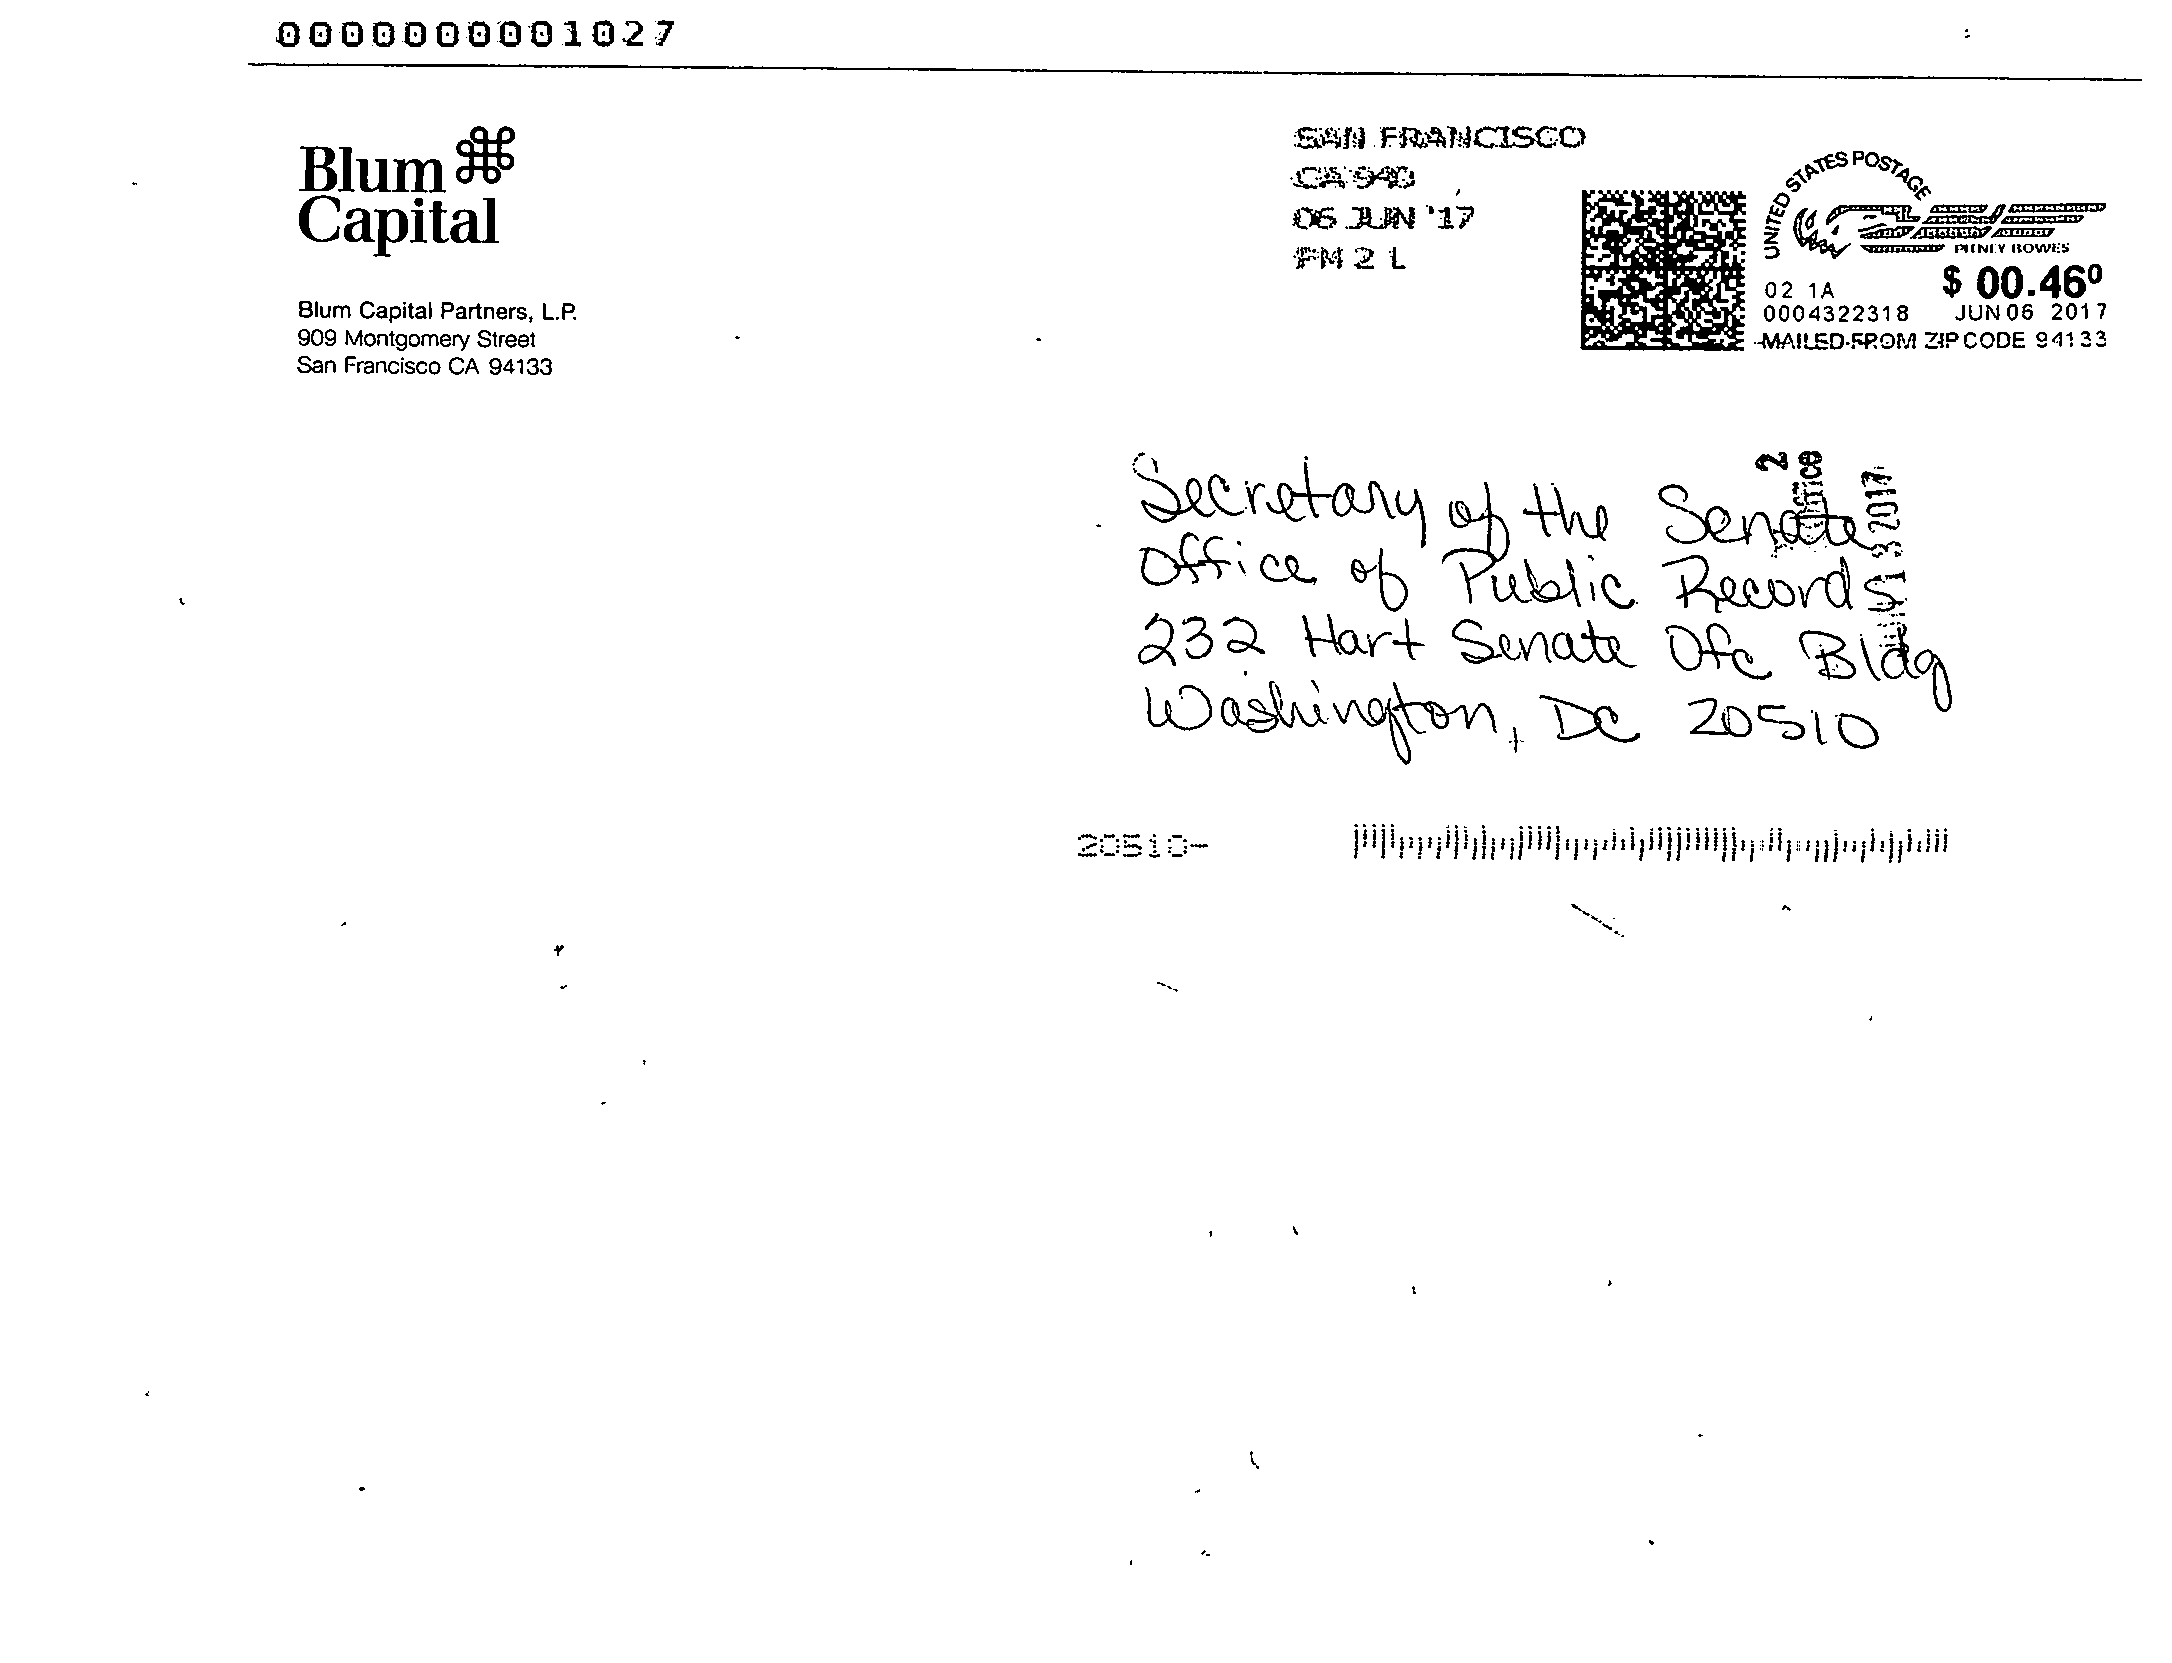 0000000001027
Blum
Capital
Blum Capital Partners, L.P.
909 Montgomery Street
San Francisco CA 94133
SAN FRANCISCO
CA 940
06 JUN '17
PM 2 L
UNITED STATES POSTAGE
PITNEY BOWES
$ 00.46⁰
02 1A
0004322318 JUN 06 2017
MAILED FROM ZIP CODE 94133
Secretary of the Senate
Office of Public Records
232 Hart Senate Ofc Bldg
Washington, DC 20510
2
13 2017
20510-